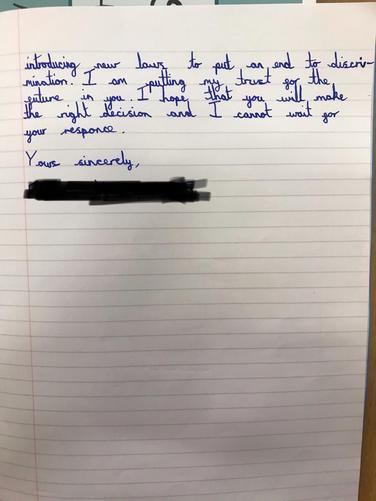 introducing new laws to put an end to discri-
mination. I am putting my trust for the
future in you. I hope that you will make
the right decision and I cannot wait for
your responce.
Yours sincerely,